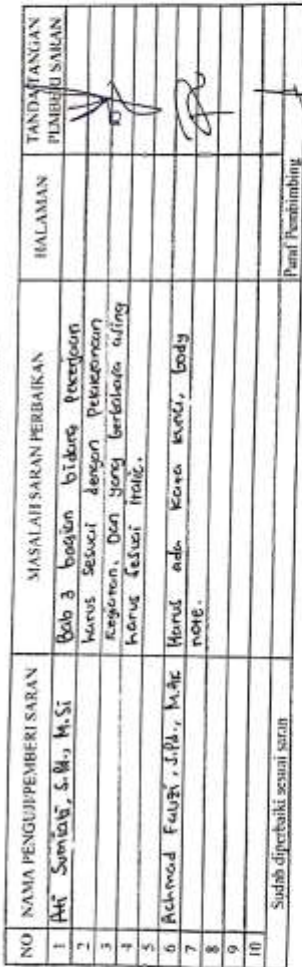 NO NAMA PENGUJI/PEMBERI SARAN MASALAH SARAN PERBAIKAN HALAMAN TANDA TANGAN PEMBERI SARAN
1 Ati Sumiati, S.Pd., M.Si Bab 3 bagian bidang pekerjaan
2 harus sesuai dengan Pelaksanaan
3 kegiatan. Dan yang berbahasa asing
4 harus sesuai italic.
5
6 Achmad Fauzi, S.Pd., M.Ak Harus ada kata kunci, body
7 note.
8
9
10
Sudah diperbaiki sesuai saran Paraf Pembimbing